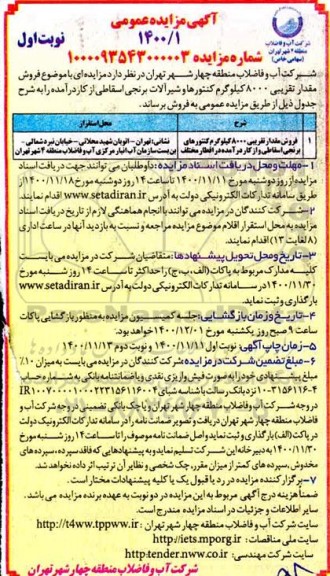 آگهی مزایده عمومی
۱۴۰۰/۱
نوبت اول
شماره مزایده ۱۰۰۰۰۹۳۵۴۳۰۰۰۰۰۳
شرکت آب و فاضلاب
منطقه ۴ شهر تهران
(سهامی خاص)
شرکت آب و فاضلاب منطقه چهار شهر تهران در نظر دارد مزایده ای با موضوع فروش
مقدار تقریبی ۸۰۰۰ کیلوگرم کنتورها و شیرآلات برنجی اسقاطی از کار درآمده را به شرح
جدول ذیل از طریق مزایده عمومی به فروش برساند.
شرح
محل استقرار
۱
فروش مقدار تقریبی ۸۰۰۰ کیلوگرم کنتورهای
برنجی اسقاطی و از کار درآمده در اقطار مختلف
نشانی: تهران - اتوبان شهید محلاتی - خیابان نبرد شمالی -
بن بست سازمان آب انبار مرکزی آب و فاضلاب منطقه ۴ شهر تهران
۱- مهلت و محل دریافت اسناد مزایده: داوطلبان می توانند جهت دریافت اسناد
مزایده از روز دوشنبه مورخ ۱۴۰۰/۱۱/۱۱ تا ساعت ۱۴ روز دوشنبه مورخ ۱۴۰۰/۱۱/۱۸ از
طریق سامانه تدارکات الکترونیکی دولت به آدرس www.setadiran.ir اقدام نمایند.
۲- شرکت کنندگان در مزایده می توانند با انجام هماهنگی لازم از تاریخ دریافت اسناد
مزایده به محل استقرار اقلام موضوع مزایده مراجعه و نسبت به بازدید آنها در ساعت اداری
(۸ لغایت ۱۳) اقدام نمایند.
۳- تاریخ و محل تحویل پیشنهادها: متقاضیان شرکت در مزایده می بایست
کلیه مدارک مربوط به پاکات (الف، ب، ج) را حداکثر تا ساعت ۱۴ روز شنبه مورخ
۱۴۰۰/۱۱/۳۰ در سامانه تدارکات الکترونیکی دولت به آدرس www.setadiran.ir
بارگذاری و ثبت نماید.
۴- تاریخ و زمان بازگشایی: جلسه کمیسیون مزایده به منظور بازگشایی پاکات
ساعت ۹ صبح روز یکشنبه مورخ ۱۴۰۰/۱۲/۰۱ خواهد بود.
۵- زمان چاپ آگهی: نوبت اول ۱۴۰۰/۱۱/۱۱ و نوبت دوم ۱۴۰۰/۱۱/۱۳
۶- مبلغ تضمین شرکت در مزایده: شرکت کنندگان در مزایده می بایست به میزان ۱۰٪
مبلغ پیشنهادی خود را به صورت فیش واریزی نقدی و یا ضمانتنامه بانکی به شماره حساب
در وجه شرکت آب و فاضلاب منطقه چهار شهر تهران و یا چک بانکی تضمینی در وجه شرکت آب و
فاضلاب منطقه چهار شهر تهران دریافت و تصویر ضمانت نامه را در سامانه تدارکات الکترونیک دولت
در پاکت (الف) بارگذاری و ثبت نماید و اصل ضمانت نامه موصوف را تا ساعت ۱۴ روز شنبه مورخ
۱۴۰۰/۱۱/۳۰ به دبیرخانه این شرکت تسلیم نماید و به پیشنهادهایی که فاقد سپرده، سپرده های
مخدوش، سپرده های کمتر از میزان مقرر، چک شخصی و نظایر آن ترتیب اثر داده نخواهد شد.
۷- برگزار کننده مزایده در رد یا قبول یک یا کلیه پیشنهادات مختار است.
ضمنا هزینه درج آگهی مربوط به این مزایده در دو نوبت به عهده برنده مزایده می باشد.
سایر اطلاعات و جزئیات در اسناد مزایده مندرج است.
سایت شرکت آب و فاضلاب منطقه چهار شهر تهران: http://t4ww.tppww.ir
سایت ملی مناقصات: http://iets.mporg.ir
سایت شرکت مهندسی: http:tender.nww.co.ir
شرکت آب و فاضلاب منطقه چهار شهر تهران